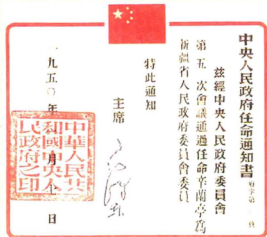 中央人民政府任命通知書
茲經中央人民政府委員會
第五次會議通過任命辛蘭亭爲
新疆省人民政府委員會委員
特此通知
主席
毛澤東
一九五〇年 月 日
中華人民共
和國中央人
民政府之印